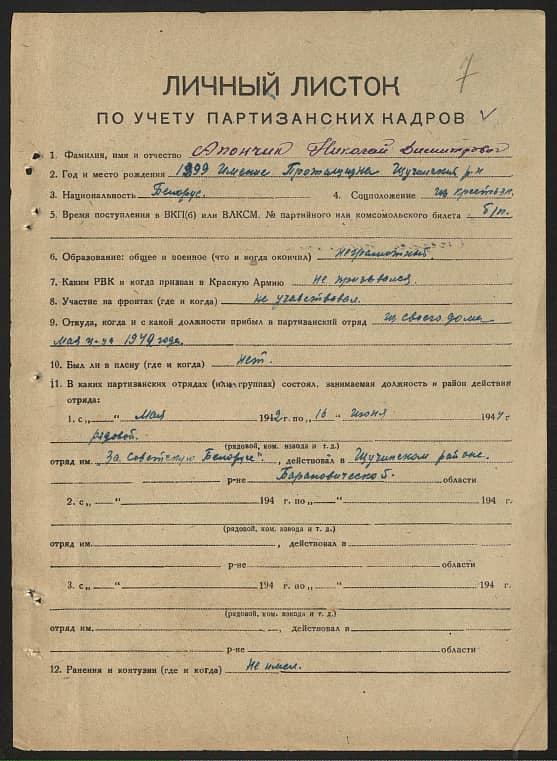 7
ЛИЧНЫЙ ЛИСТОК
ПО УЧЕТУ ПАРТИЗАНСКИХ КАДРОВ
1. Фамилия, имя и отчество Апончик Николай Дмитрович
2. Год и место рождения 1899 Имение Щучинский р-н
3. Национальность Белорус. 4. Соцположение из крестьян.
5. Время поступления в ВКП(б) или ВЛКСМ. № партийного или комсомольского билета б/п.
6. Образование: общее и военное (что и когда окончил) неграмотный
7. Каким РВК и когда призван в Красную Армию не призывался.
8. Участие на фронтах (где и когда) не участвовал.
9. Откуда, когда и с какой должности прибыл в партизанский отряд из своего дома
мая м-ца 1942 года.
10. Был ли в плену (где и когда) нет.
11. В каких партизанских отрядах (или группах) состоял, занимаемая должность и район действия
отряда:
1. с „ “ мая 1942 г. по „ 16 “ июня 1944 г.
рядовой.
(рядовой, ком. взвода и т. д.)
отряд им. „За Советскую Белорус“, действовал в Щучинском районе.
р-не Барановической области
2. с „ “ 194 г. по „ “ 194 г.
(рядовой, ком. взвода и т. д.)
отряд им. , действовал в
р-не области
3. с „ “ 194 г. по „ “ 194 г.
(рядовой, ком. взвода и т. д.)
отряд им. , действовал в
р-не области
12. Ранения и контузии (где и когда) Не имел.